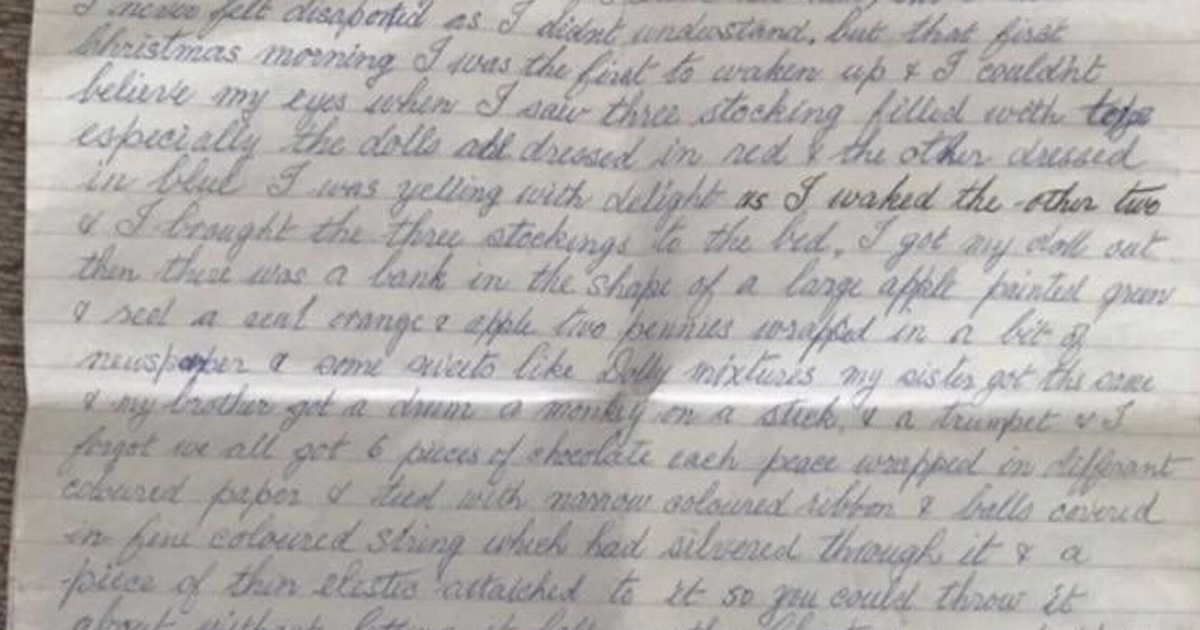 I never felt disaponted as I didnt understand, but that first
Christmas morning I was the first to waken up & I couldn't
believe my eyes when I saw three stocking filled with toys
especially the dolls all dressed in red & the other dressed
in blue I was yelling with delight as I waked the other two
& I brought the three stockings to the bed, I got my doll out
then there was a bank in the shape of a large apple painted green
& red a real orange & apple two pennies wrapped in a bit of
newspaper & some sweets like Dolly mixtures my sister got the same
& my brother got a drum a monkey on a stick, & a trumpet & I
forgot we all got 6 pieces of chocolate each peace wrapped in differant
coloured paper & tied with narrow coloured ribbon & balls covered
in fine coloured string which had silvered through it & a
piece of thin elestic attatched to it so you could throw it
about without